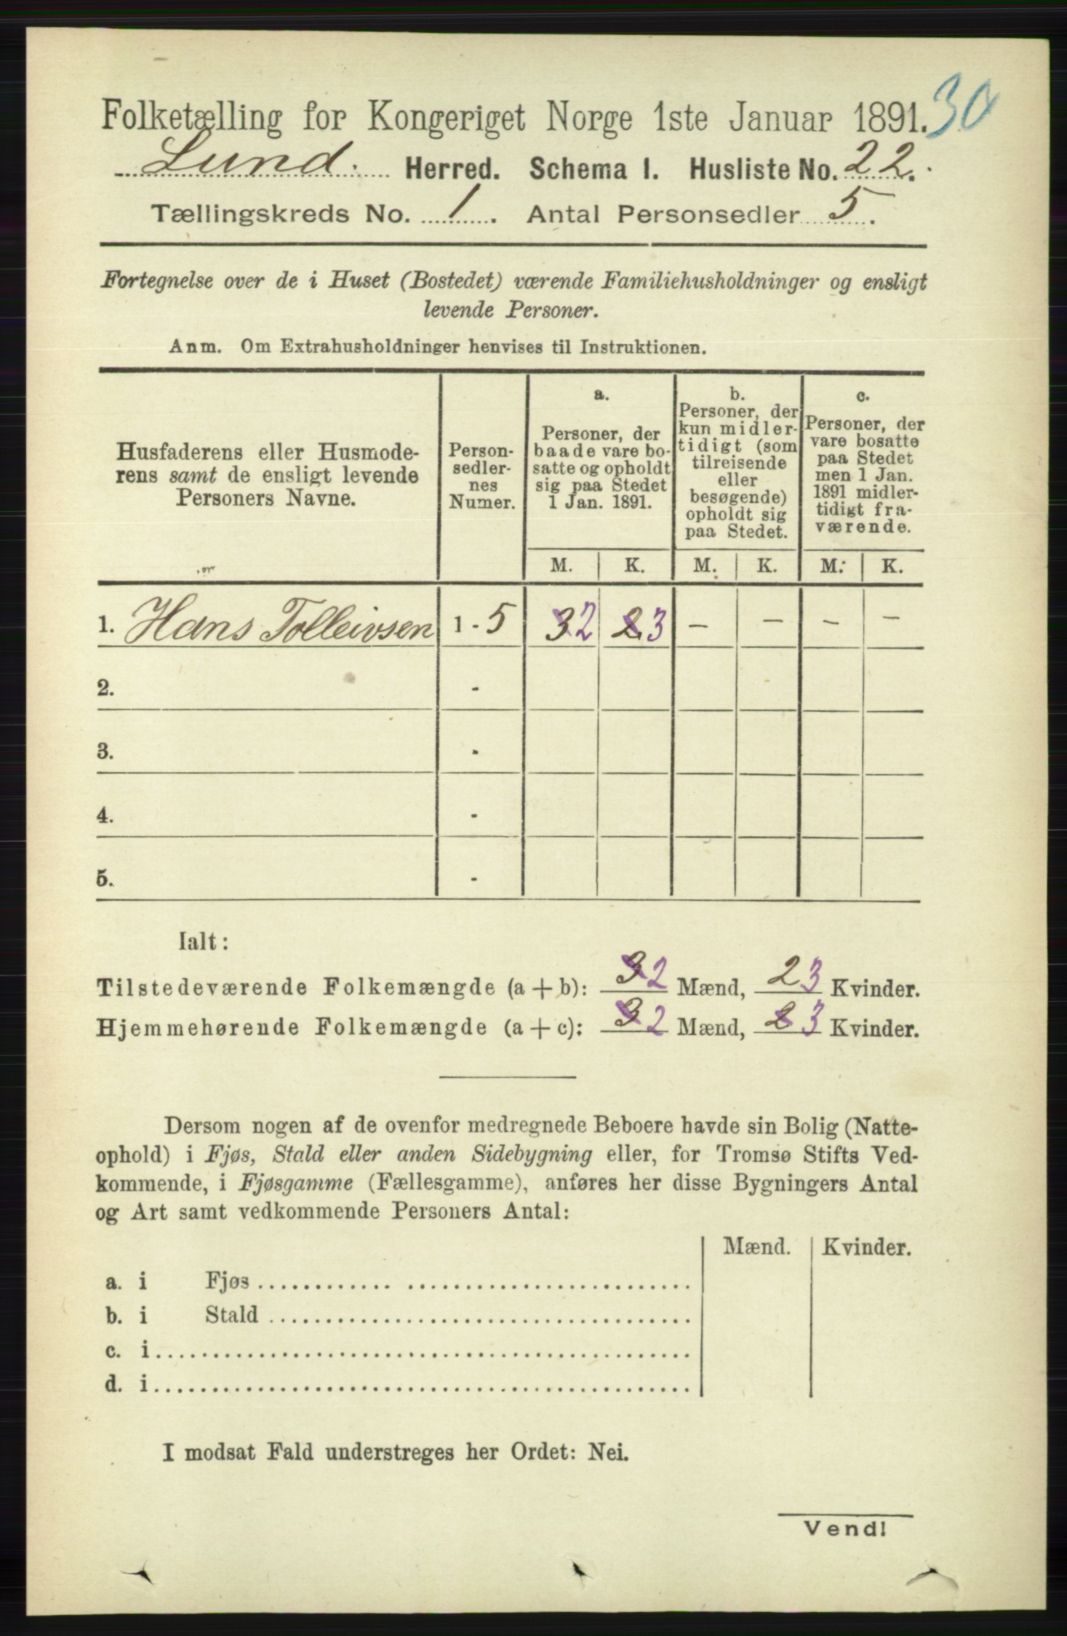 Folketælling for Kongeriget Norge 1ste Januar 1891. 30
Lund. Herred. Schema I. Husliste No. 22.
Tællingskreds No. 1. Antal Personsedler 5.
Fortegnelse over de i Huset (Bostedet) værende Familiehusholdninger og ensligt
levende Personer.
Anm. Om Extrahusholdninger henvises til Instruktionen.
Husfaderens eller Husmode-
rens samt de ensligt levende
Personers Navne.
Person-
sedler-
nes
Numer.
a.
Personer, der
baade vare bo-
satte og opholdt
sig paa Stedet
1 Jan. 1891.
b.
Personer, der
kun midler-
tidigt (som
tilreisende
eller
besøgende)
opholdt sig
paa Stedet.
c.
Personer, der
vare bosatte
paa Stedet
men 1 Jan.
1891 midler-
tidigt fra-
værende.
M. K. M. K. M. K.
1. Hans Tolleivsen 1 - 5 3 2 2 3 – – – –
2. -
3. -
4. -
5. -
Ialt:
Tilstedeværende Folkemængde (a + b): 3 2 Mænd, 2 3 Kvinder.
Hjemmehørende Folkemængde (a + c): 3 2 Mænd, 2 3 Kvinder.
Dersom nogen af de ovenfor medregnede Beboere havde sin Bolig (Natte-
ophold) i Fjøs, Stald eller anden Sidebygning eller, for Tromsø Stifts Ved-
kommende, i Fjøsgamme (Fællesgamme), anføres her disse Bygningers Antal
og Art samt vedkommende Personers Antal:
Mænd. Kvinder.
a. i Fjøs
b. i Stald
c. i
d. i
I modsat Fald understreges her Ordet: Nei.
Vend!